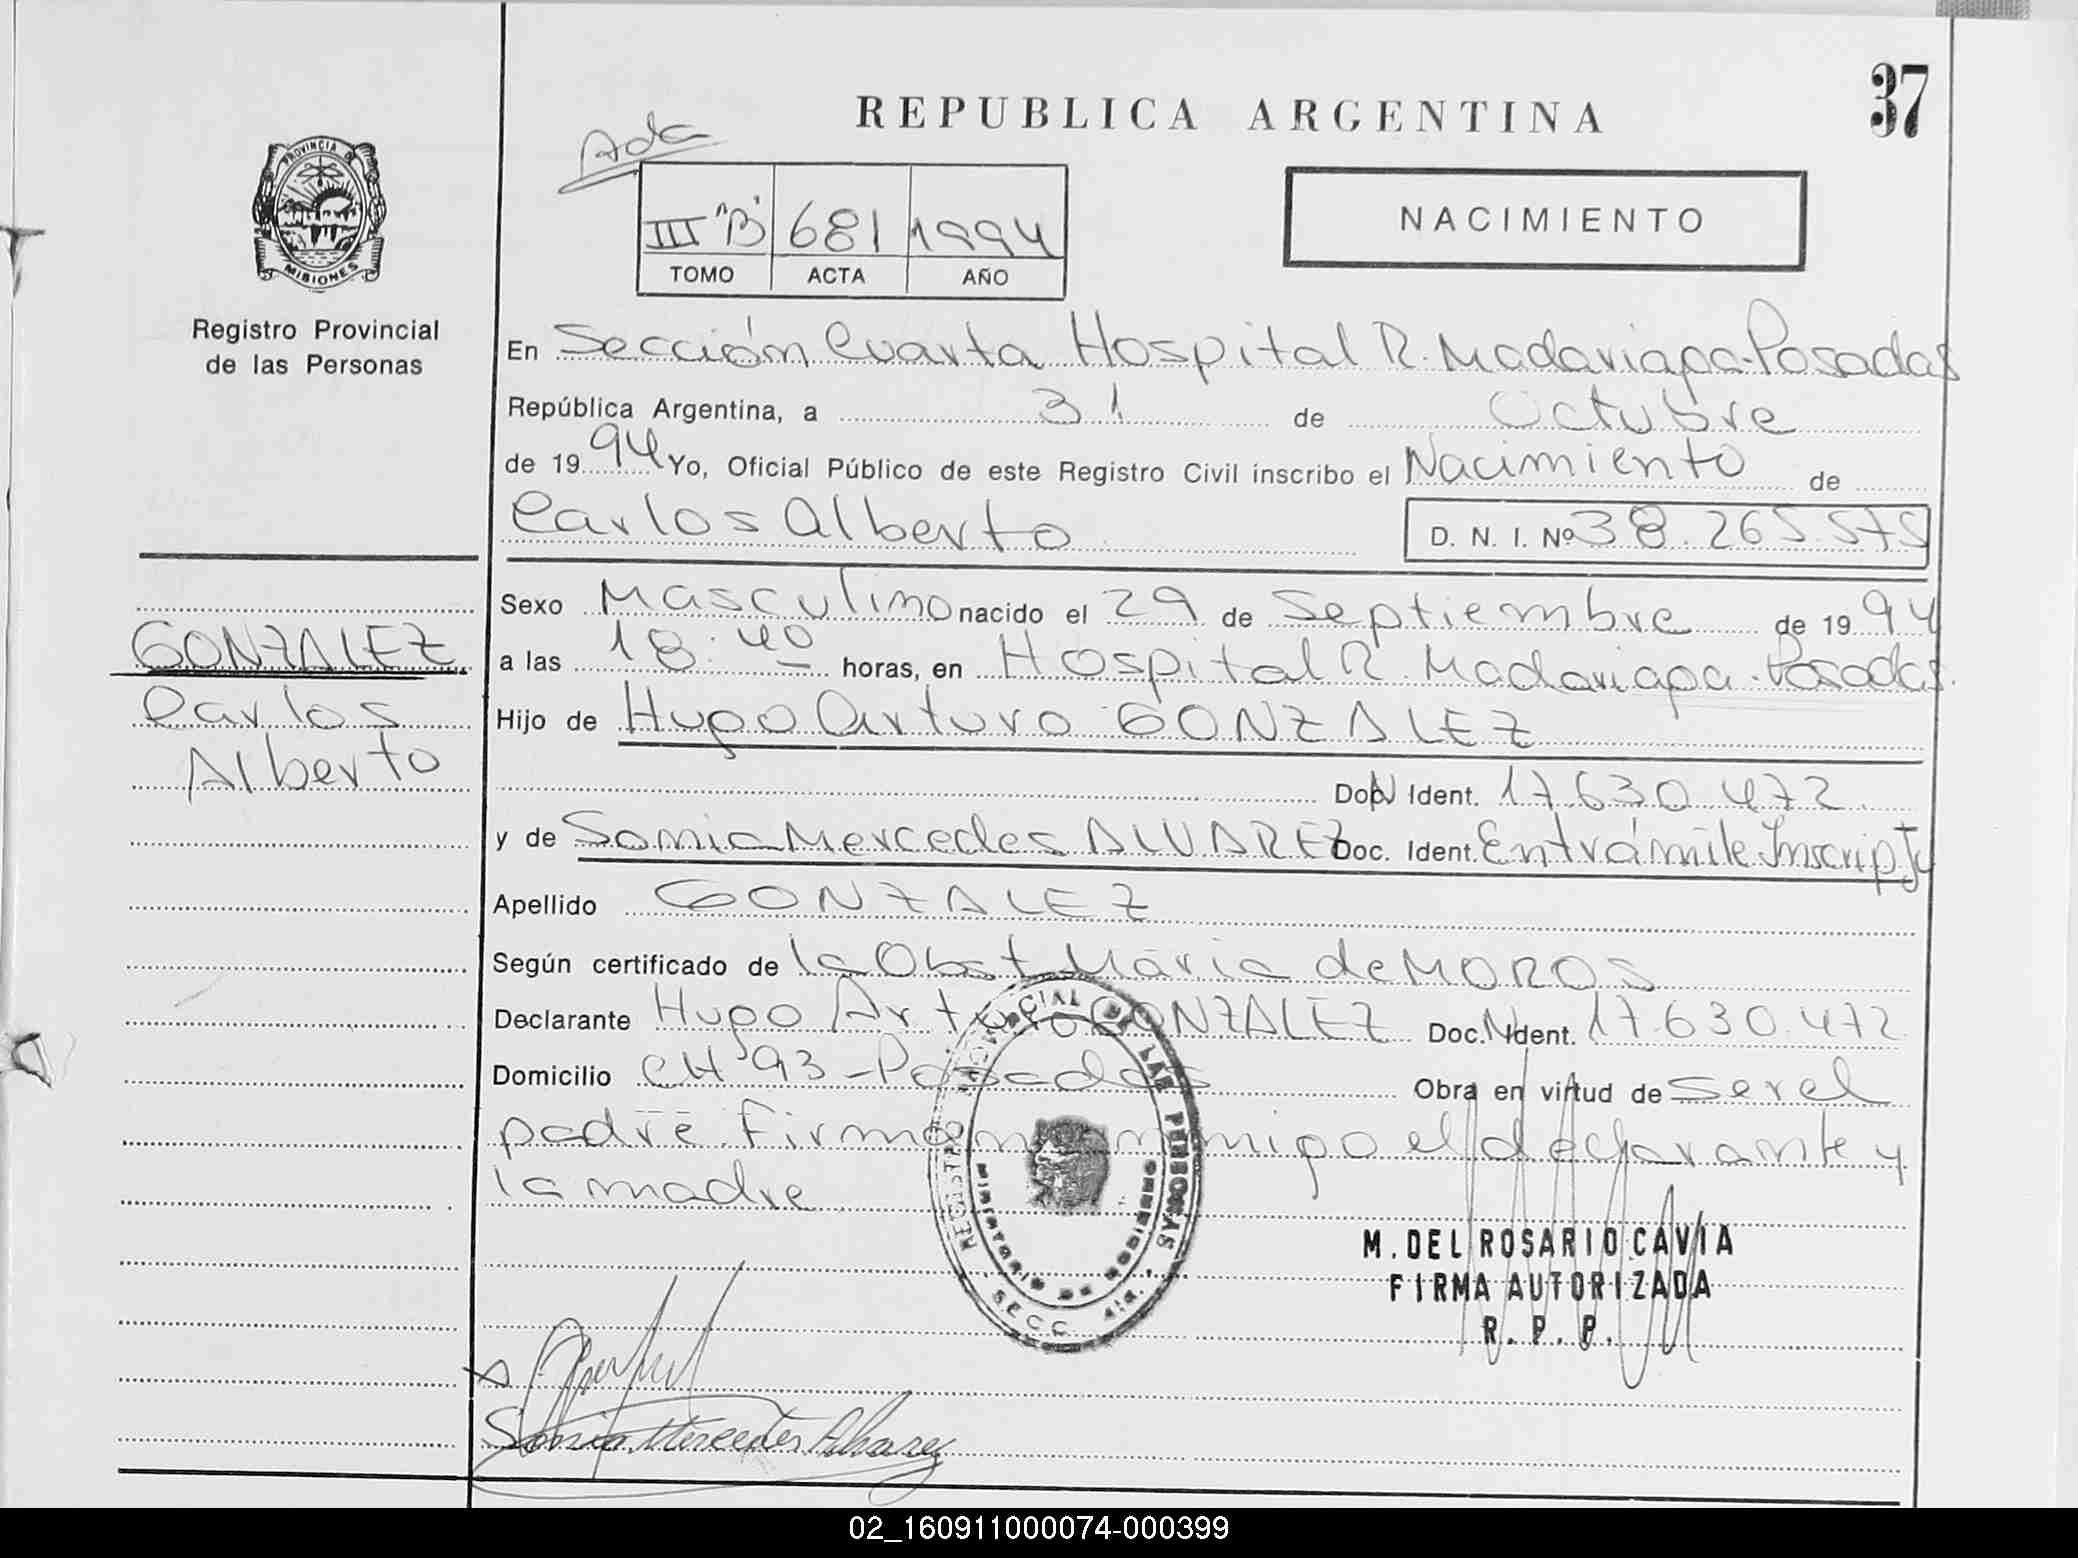 37
REPUBLICA ARGENTINA
Ada
PROVINCIA DE
MISIONES
III "B" 681 1994
TOMO ACTA AÑO
NACIMIENTO
Registro Provincial
de las Personas
En Sección Cuarta Hospital R. Madariaga-Posadas
República Argentina, a 31 de Octubre
de 1994 Yo, Oficial Público de este Registro Civil inscribo el Nacimiento de
Carlos Alberto D. N. I. Nº 38.265.575
Sexo Masculino nacido el 29 de Septiembre de 1994
GONZALEZ
Carlos
Alberto
a las 18:40 horas, en Hospital R. Madariaga-Posadas.
Hijo de Hugo Arturo GONZALEZ
Doc. Ident. 17.630.472.
y de Sonia Mercedes ALVAREZ Doc. Ident. En trámite Inscrip
Apellido GONZALEZ
Según certificado de la Obst María de MOROS
Declarante Hugo Arturo GONZALEZ Doc. Ident. 17.630.472
Domicilio CH 93-Posadas Obra en virtud de ser el
padre. Firman conmigo el declarante y
la madre
REGISTRO PROVINCIAL DE LAS PERSONAS
MINISTERIO DE GOBIERNO
SECC. 4ta.
M. DEL ROSARIO CAVIA
FIRMA AUTORIZADA
R. P. P.
Sonia Mercedes Alvarez
02_160911000074-000399